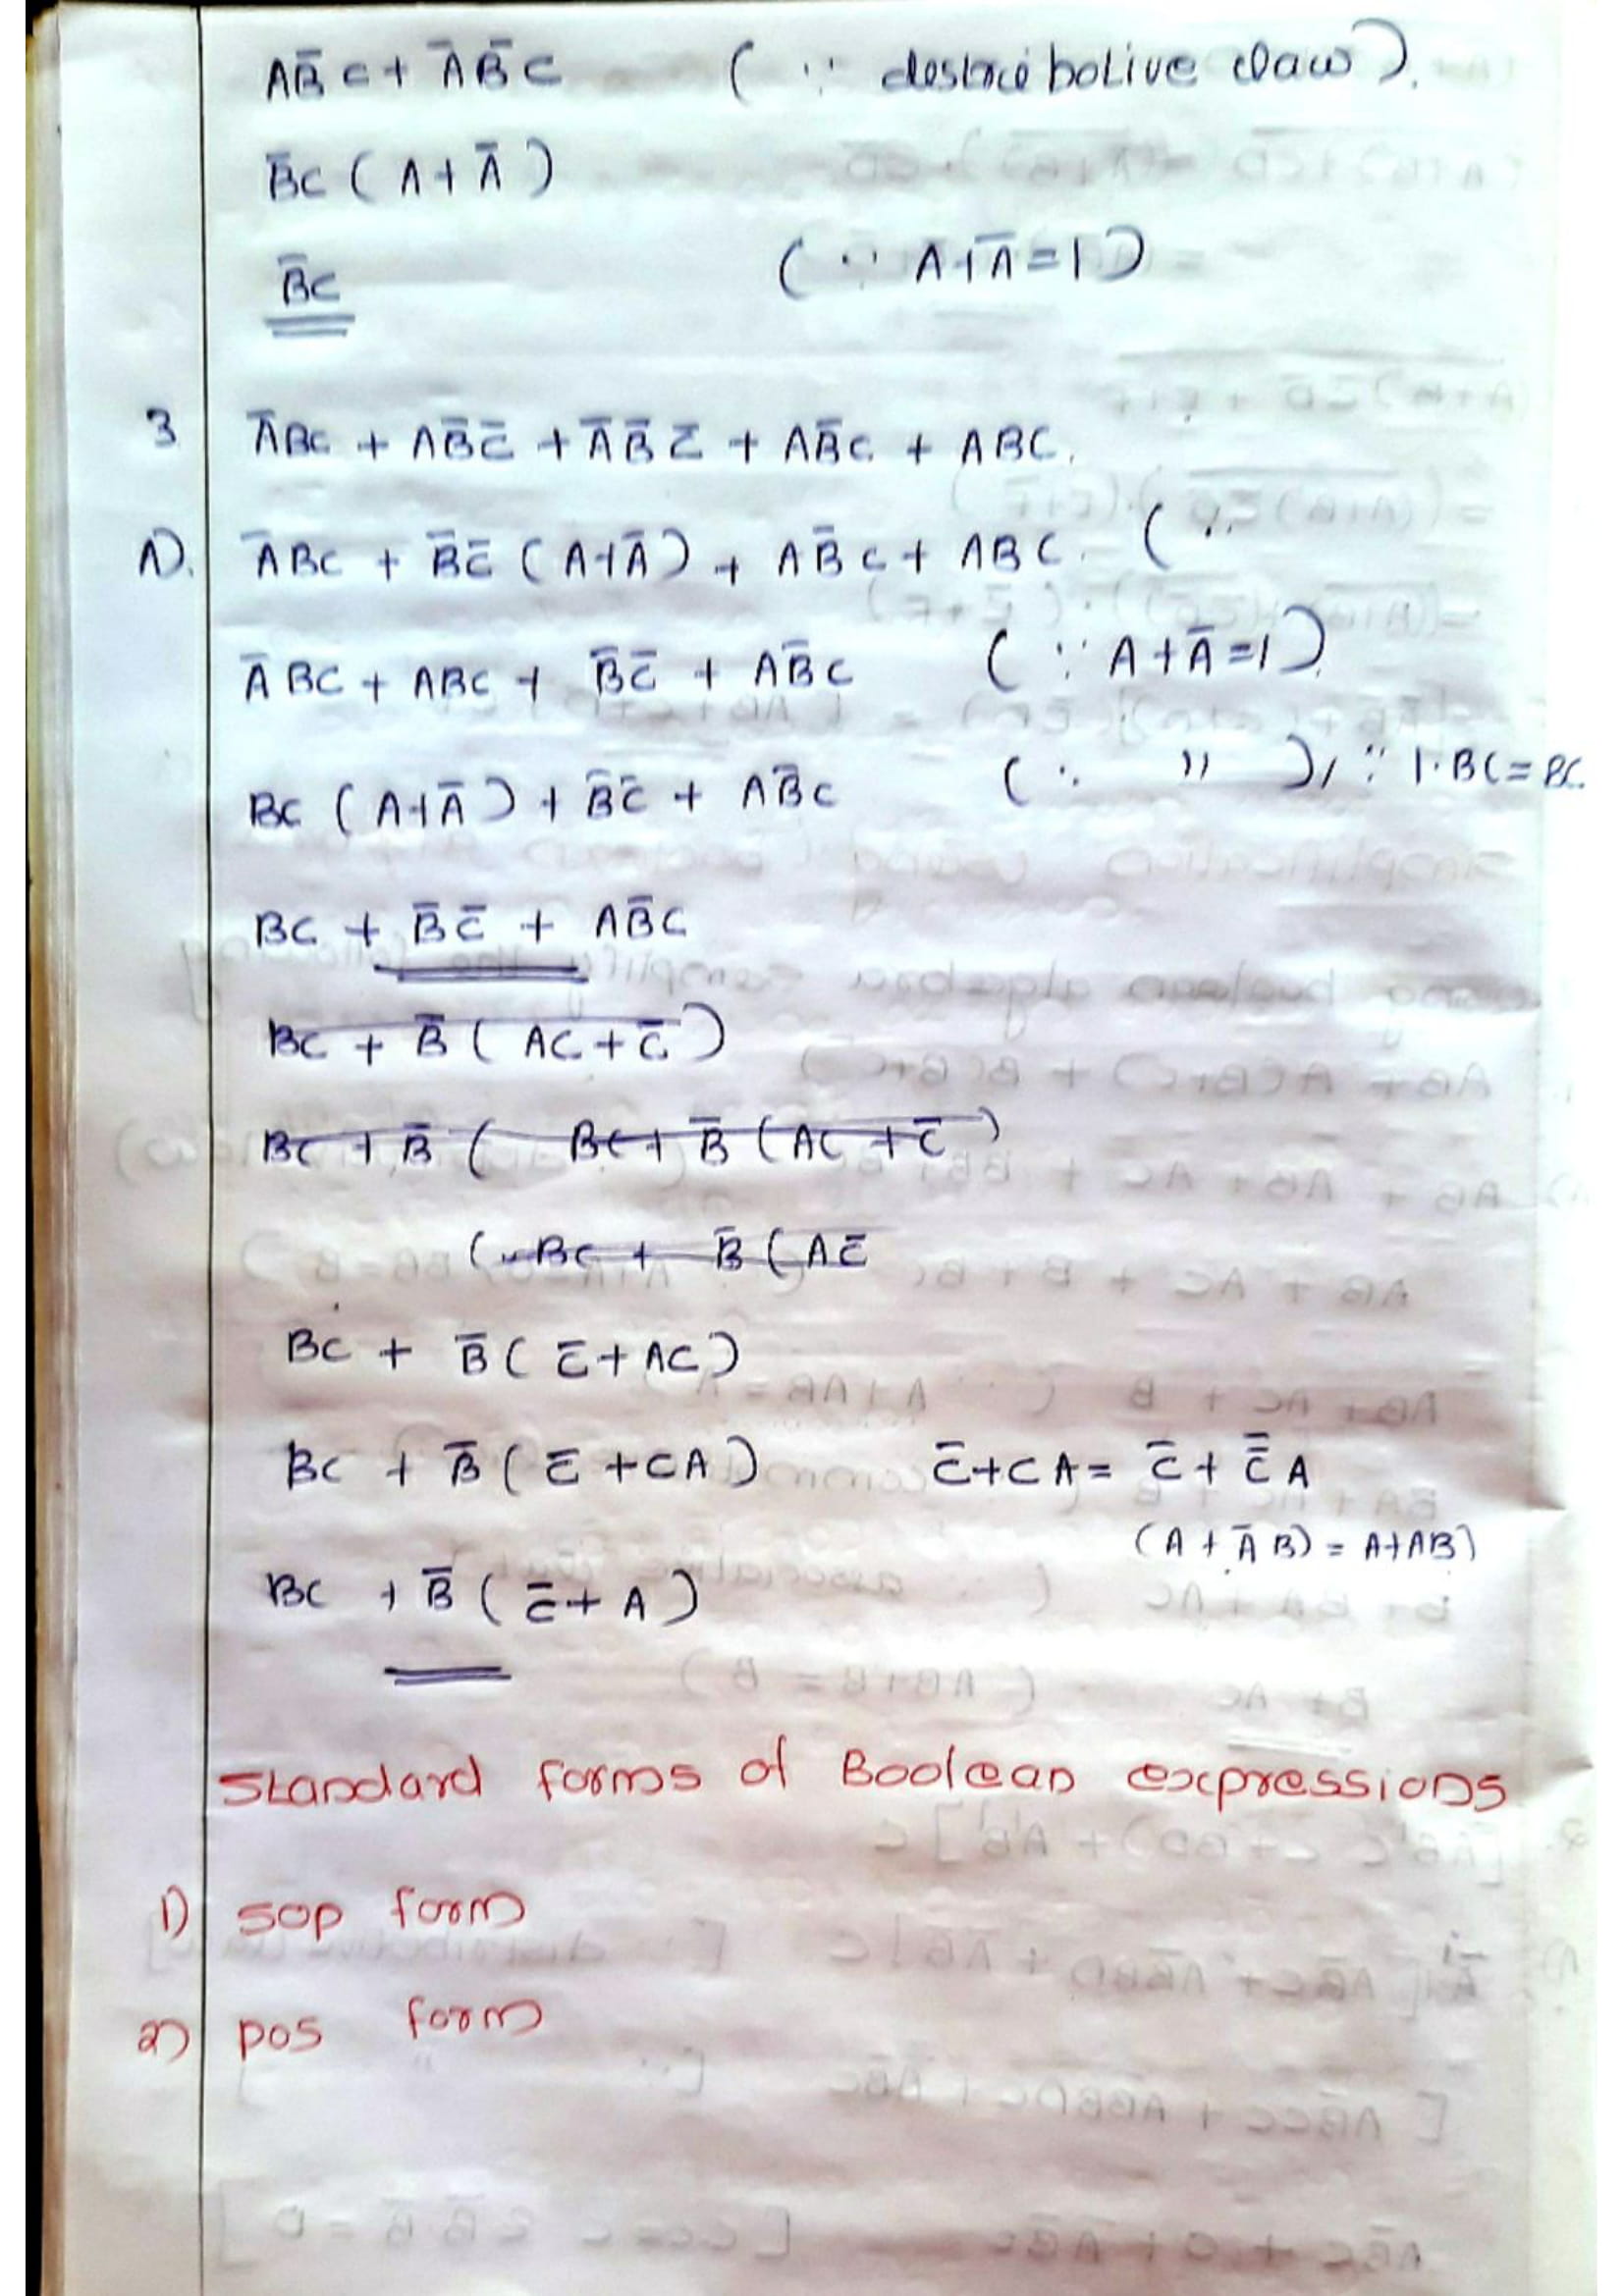 AB̄C + ĀB̄C ( ∵ destributive law ).
B̄C ( A + Ā )
B̄C ( ∵ A + Ā = 1 )
3 ĀBC + AB̄C̄ + ĀB̄C̄ + AB̄C + ABC.
A). ĀBC + B̄C̄ ( A + Ā ) + AB̄C + ABC. ( ∵
ĀBC + ABC + B̄C̄ + AB̄C ( ∵ A + Ā = 1 ).
BC ( A + Ā ) + B̄C̄ + AB̄C ( ∵ " ), ∵ 1·BC = BC.
BC + B̄C̄ + AB̄C
BC + B̄ ( AC + C̄ )
BC + B̄ ( BC + B̄ ( AC + C̄ )
BC + B̄ ( AC̄
BC + B̄ ( C̄ + AC )
BC + B̄ ( C̄ + CA ) C̄ + CA = C̄ + C̿A
( A + ĀB ) = A + AB )
BC + B̄ ( C̄ + A )
Standard forms of Boolean expressions
1) SOP form
2) POS form